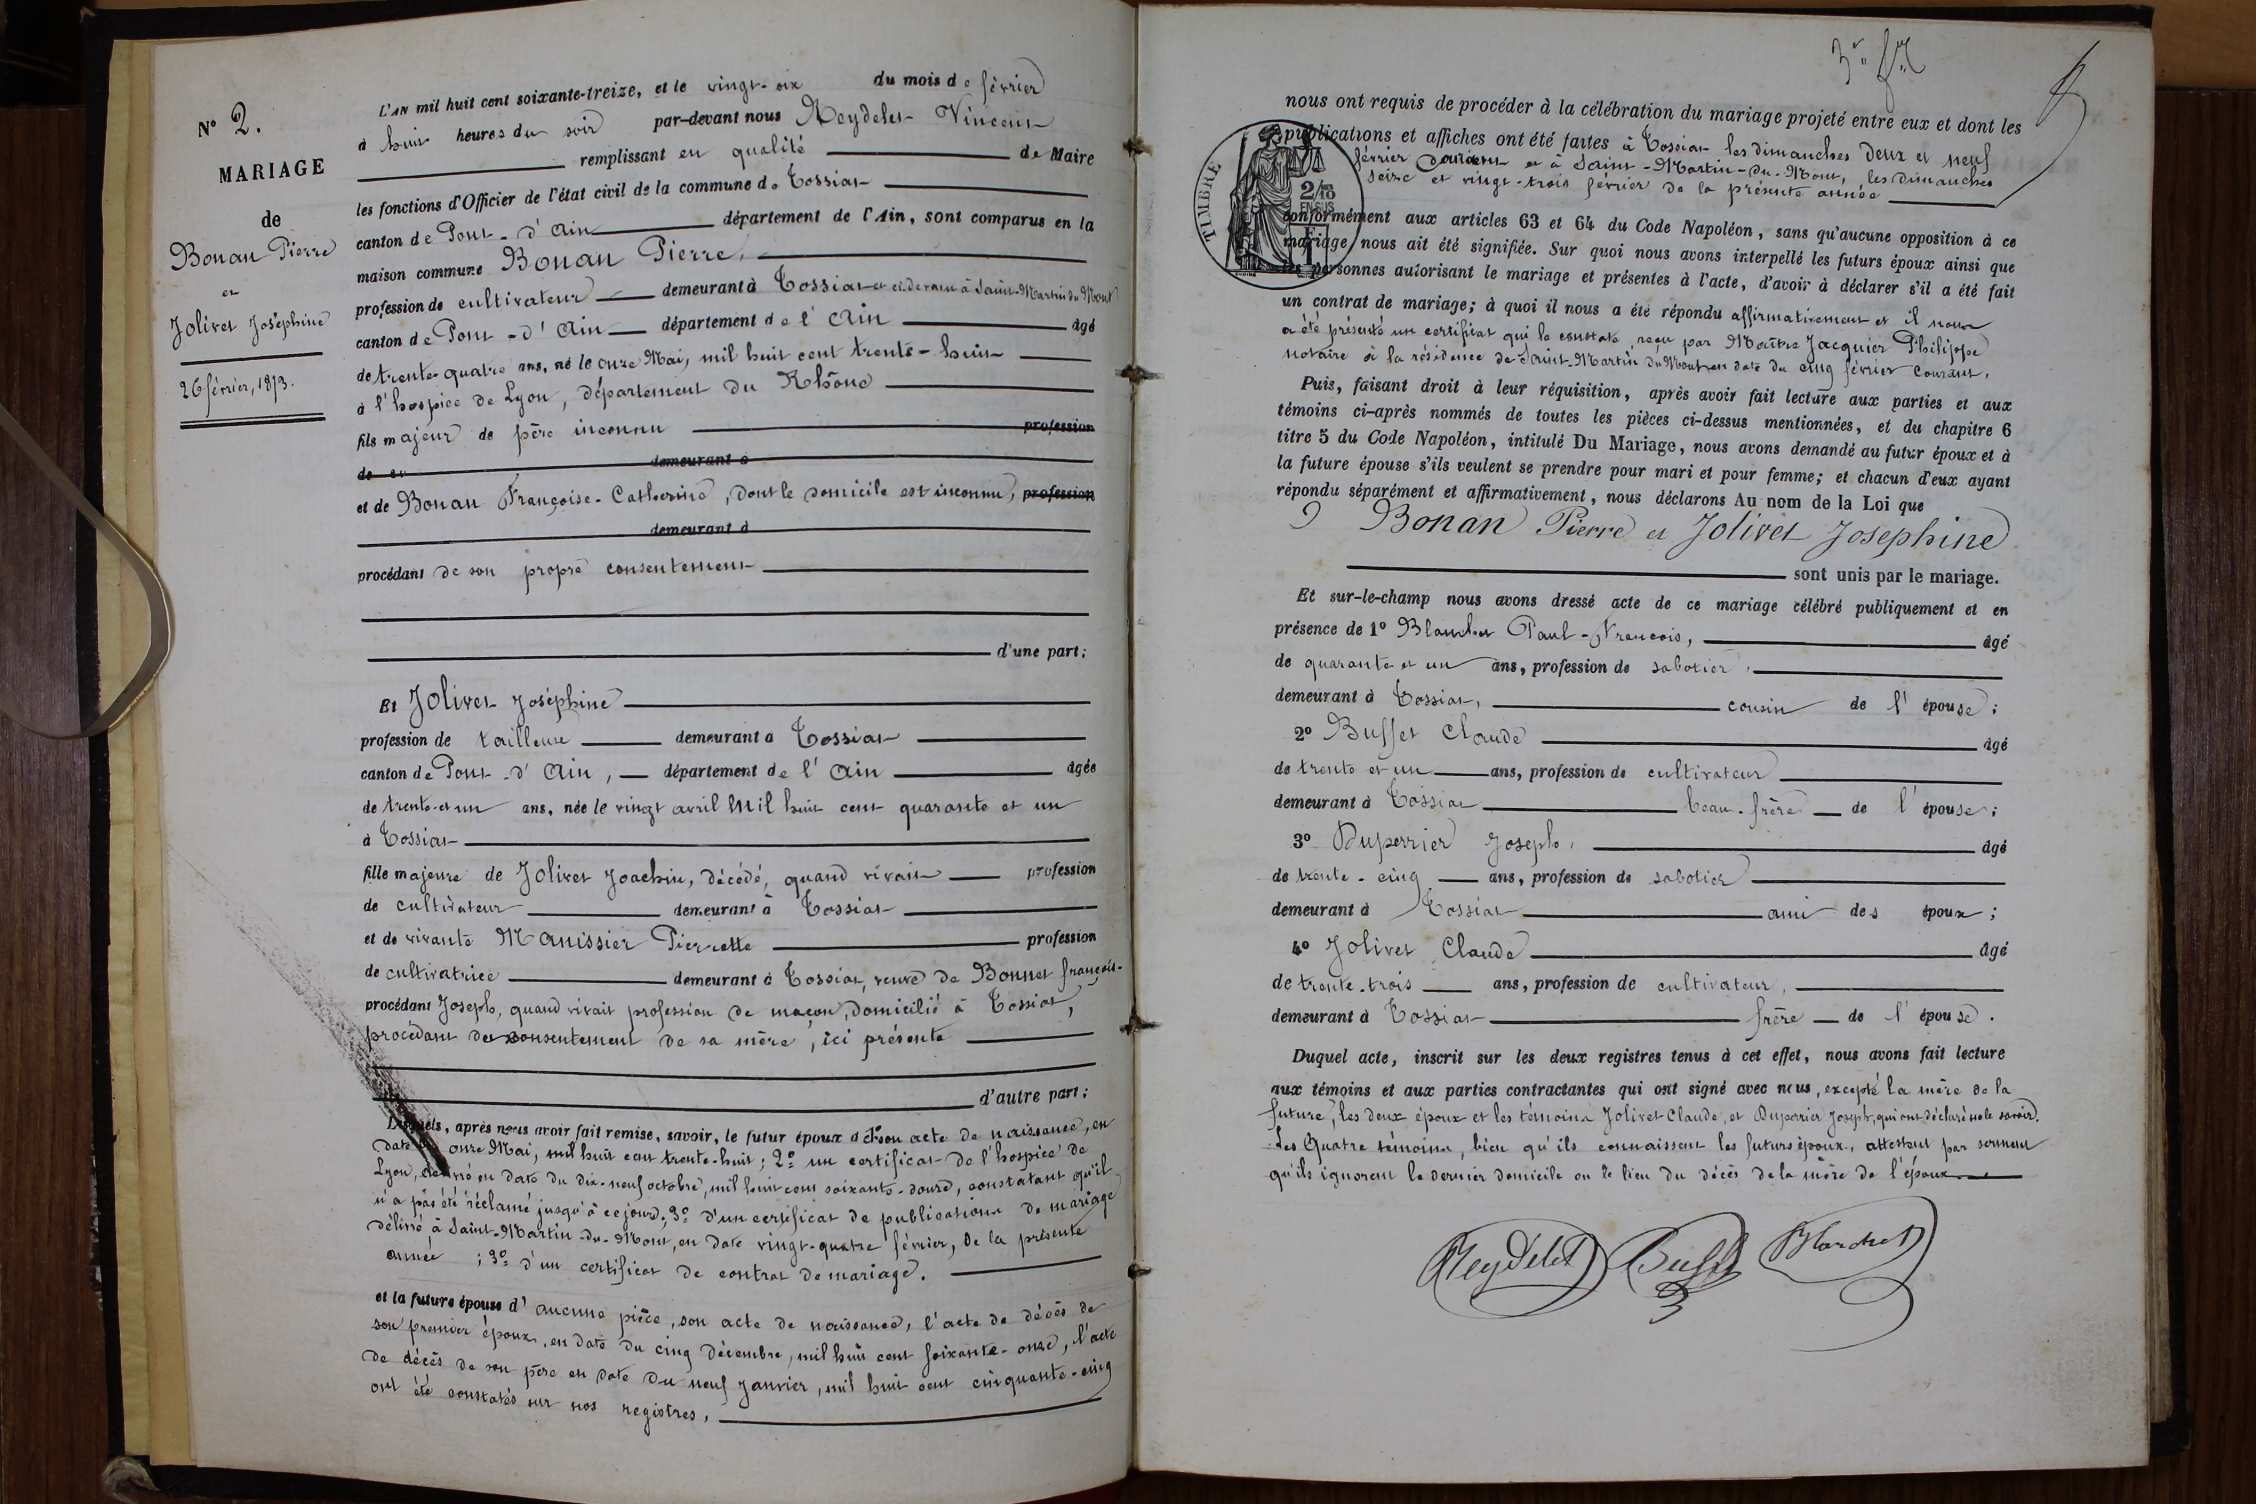 N° 2.
MARIAGE
de
Bonan Pierre
et
Jolivet Joséphine
26 février, 1873.
L'AN mil huit cent soixante-treize, et le vingt-six du mois de février
à huit heures du soir par-devant nous Neydelet Vincent
remplissant en qualité de Maire
les fonctions d'Officier de l'état civil de la commune de Tossiat
canton de Pont-d'Ain département de l'Ain, sont comparus en la
maison commune Bonan Pierre,
profession de cultivateur demeurant à Tossiat et ci-devant à Saint-Martin du Mont
canton de Pont-d'Ain département de l'Ain âgé
de trente-quatre ans, né le onze Mai, mil huit cent trente-huit
à l'hospice de Lyon, département du Rhône
fils majeur de père inconnu profession
de demeurant à
et de Bonan Françoise-Catherine, dont le domicile est inconnu, profession
demeurant à
procédant de son propre consentement
d'une part;
Et Jolivet Joséphine
profession de tailleuse demeurant à Tossiat
canton de Pont-d'Ain, département de l'Ain âgée
de trente-et un ans, née le vingt avril mil huit cent quarante et un
à Tossiat
fille majeure de Jolivet Joachin, décédé, quand vivait profession
de cultivateur demeurant à Tossiat
et de vivante Manissier Pierrette profession
de cultivatrice demeurant à Tossiat, veuve de Bonnet françois-
procédant Joseph, quand vivait profession de maçon, domicilié à Tossiat,
procédant du consentement de sa mère, ici présente
d'autre part;
Lesquels, après nous avoir fait remise, savoir, le futur époux d' 1° son acte de naissance, en
date du onze Mai, mil huit cent trente-huit; 2° un certificat de l'hospice de
Lyon, délivré en date du dix-neuf octobre, mil huit cent soixante-douze, constatant qu'il
n'a pas été réclamé jusqu'à ce jour; 3° d'un certificat de publications de mariage
délivré, à Saint-Martin-du-Mont, en date vingt-quatre février, de la présente
année; 3° d'un certificat de contrat de mariage.
et la future épouse d'aucune pièce, son acte de naissance, l'acte de décès de
son premier époux, en date du cinq décembre, mil huit cent soixante-onze, l'acte
de décès de son père en date du neuf Janvier, mil huit cent cinquante-cinq
ont été constatés sur nos registres,
nous ont requis de procéder à la célébration du mariage projeté entre eux et dont les
publications et affiches ont été faites à Tossiat les dimanches deux et neuf
février courant et à Saint-Martin-du-Mont, les dimanches
seize et vingt-trois février de la présente année
TIMBRE
2/10
EN SUS
conformément aux articles 63 et 64 du Code Napoléon, sans qu'aucune opposition à ce
mariage nous ait été signifiée. Sur quoi nous avons interpellé les futurs époux ainsi que
les personnes autorisant le mariage et présentes à l'acte, d'avoir à déclarer s'il a été fait
un contrat de mariage; à quoi il nous a été répondu affirmativement et il nous
a été présenté un certificat qui le constate, reçu par Maître Jacquier Philippe
notaire à la résidence de Saint-Martin du Mont en date du cinq février courant.
Puis, faisant droit à leur réquisition, après avoir fait lecture aux parties et aux
témoins ci-après nommés de toutes les pièces ci-dessus mentionnées, et du chapitre 6
titre 5 du Code Napoléon, intitulé Du Mariage, nous avons demandé au futur époux et à
la future épouse s'ils veulent se prendre pour mari et pour femme; et chacun d'eux ayant
répondu séparément et affirmativement, nous déclarons Au nom de la Loi que
Bonan Pierre et Jolivet Josephine
sont unis par le mariage.
Et sur-le-champ nous avons dressé acte de ce mariage célébré publiquement et en
présence de 1° Blanchet Paul-François, âgé
de quarante et un ans, profession de sabotier,
demeurant à Tossiat, cousin de l'épouse;
2° Buffet Claude âgé
de trente et un ans, profession de cultivateur
demeurant à Tossiat beau-frère de l'épouse;
3° Duperrier Joseph, âgé
de trente-cinq ans, profession de sabotier
demeurant à Tossiat ami des époux;
4° Jolivet Claude âgé
de trente-trois ans, profession de cultivateur,
demeurant à Tossiat frère de l'épouse.
Duquel acte, inscrit sur les deux registres tenus à cet effet, nous avons fait lecture
aux témoins et aux parties contractantes qui ont signé avec nous, excepté la mère de la
future, les deux époux et les témoins Jolivet Claude, et Duperrier Joseph, qui ont déclaré ne le savoir.
Les Quatre témoins, bien qu'ils connaissent les futurs époux, attestent par serment
qu'ils ignorent le dernier domicile ou le lieu du décès de la mère de l'époux
Neydelet Buffet Blanchet